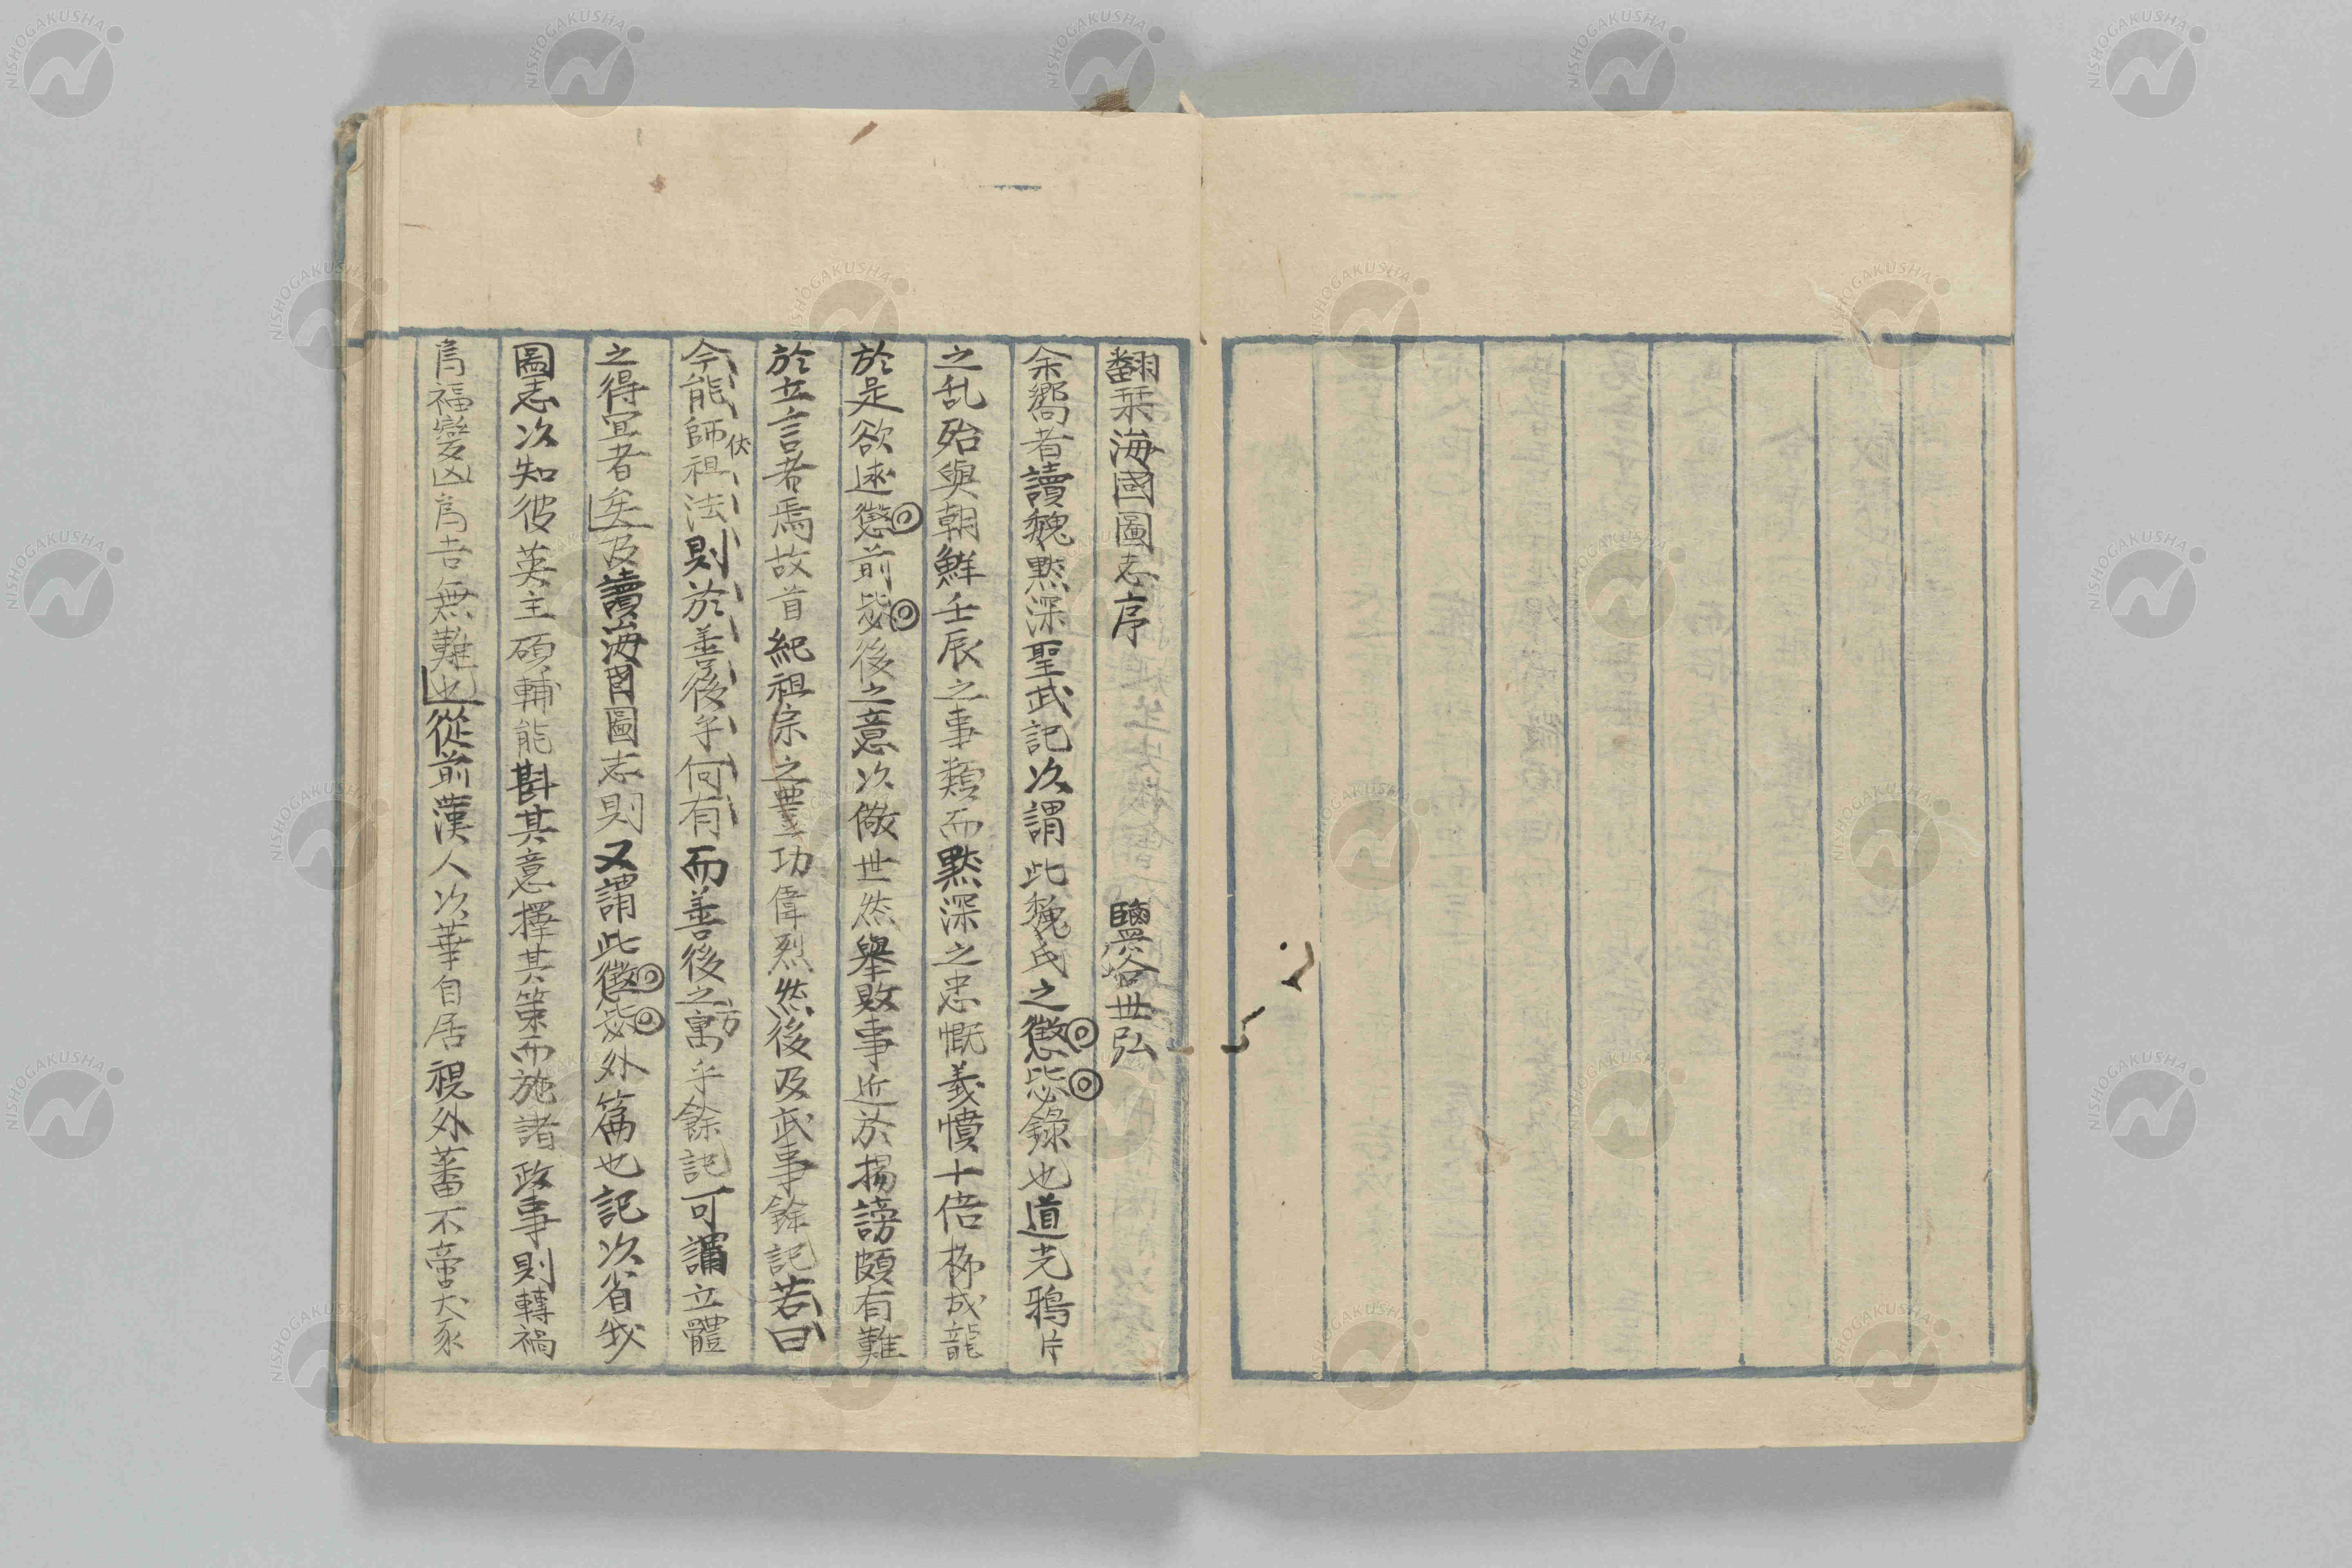 翻栞海國圖志序　鹽谷世弘
余嚮者讀魏黙深聖武記以謂此魏氏之懲毖錄也道光鴉片
之乱殆與朝鮮壬辰之事類而黙深之忠慨義憤十倍柳成龍
於是欲述懲前毖後之意以儆世然舉敗事近於揚謗頗有難
於立言者焉故首紀祖宗之豐功偉烈然後及武事餘記若曰
今能師祖法則於善後乎何有而善後之寓乎餘記可謂立體
伏
方
之得宜者矣及讀海國圖志則又謂此懲毖外篇也記以省我
圖志以知彼英主碩輔能斟其意擇其策而施諸政事則轉禍
為福變凶為吉無難也從前漢人以華自居視外蕃不啻犬豕
NISHOGAKUSHA